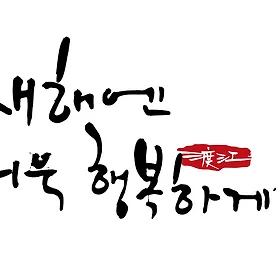 새해엔
더욱 행복하게
渡江